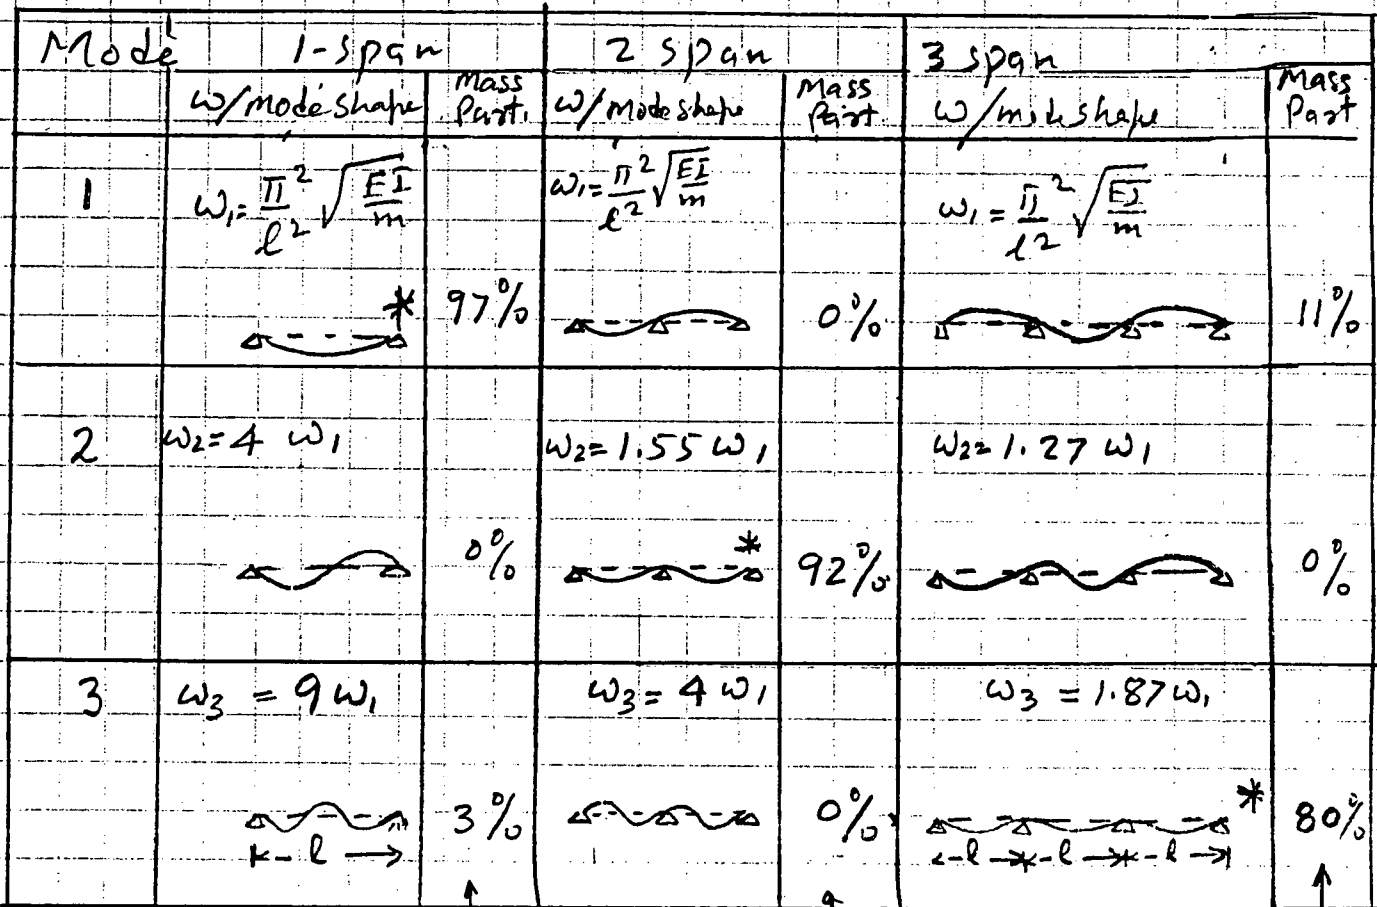 Mode 1-span 2 span 3 span
ω/mode shape Mass Part. ω/Mode shape Mass Part. ω/mode shape Mass Part
1 ω₁ = π²/l² √(EI/m) ω₁ = π²/l² √(EI/m) ω₁ = π²/l² √(EI/m)
* 97% 0% 11%
2 ω₂ = 4 ω₁ ω₂ = 1.55 ω₁ ω₂ = 1.27 ω₁
0% * 92% 0%
3 ω₃ = 9 ω₁ ω₃ = 4 ω₁ ω₃ = 1.87 ω₁
3% 0% * 80%
l l l l